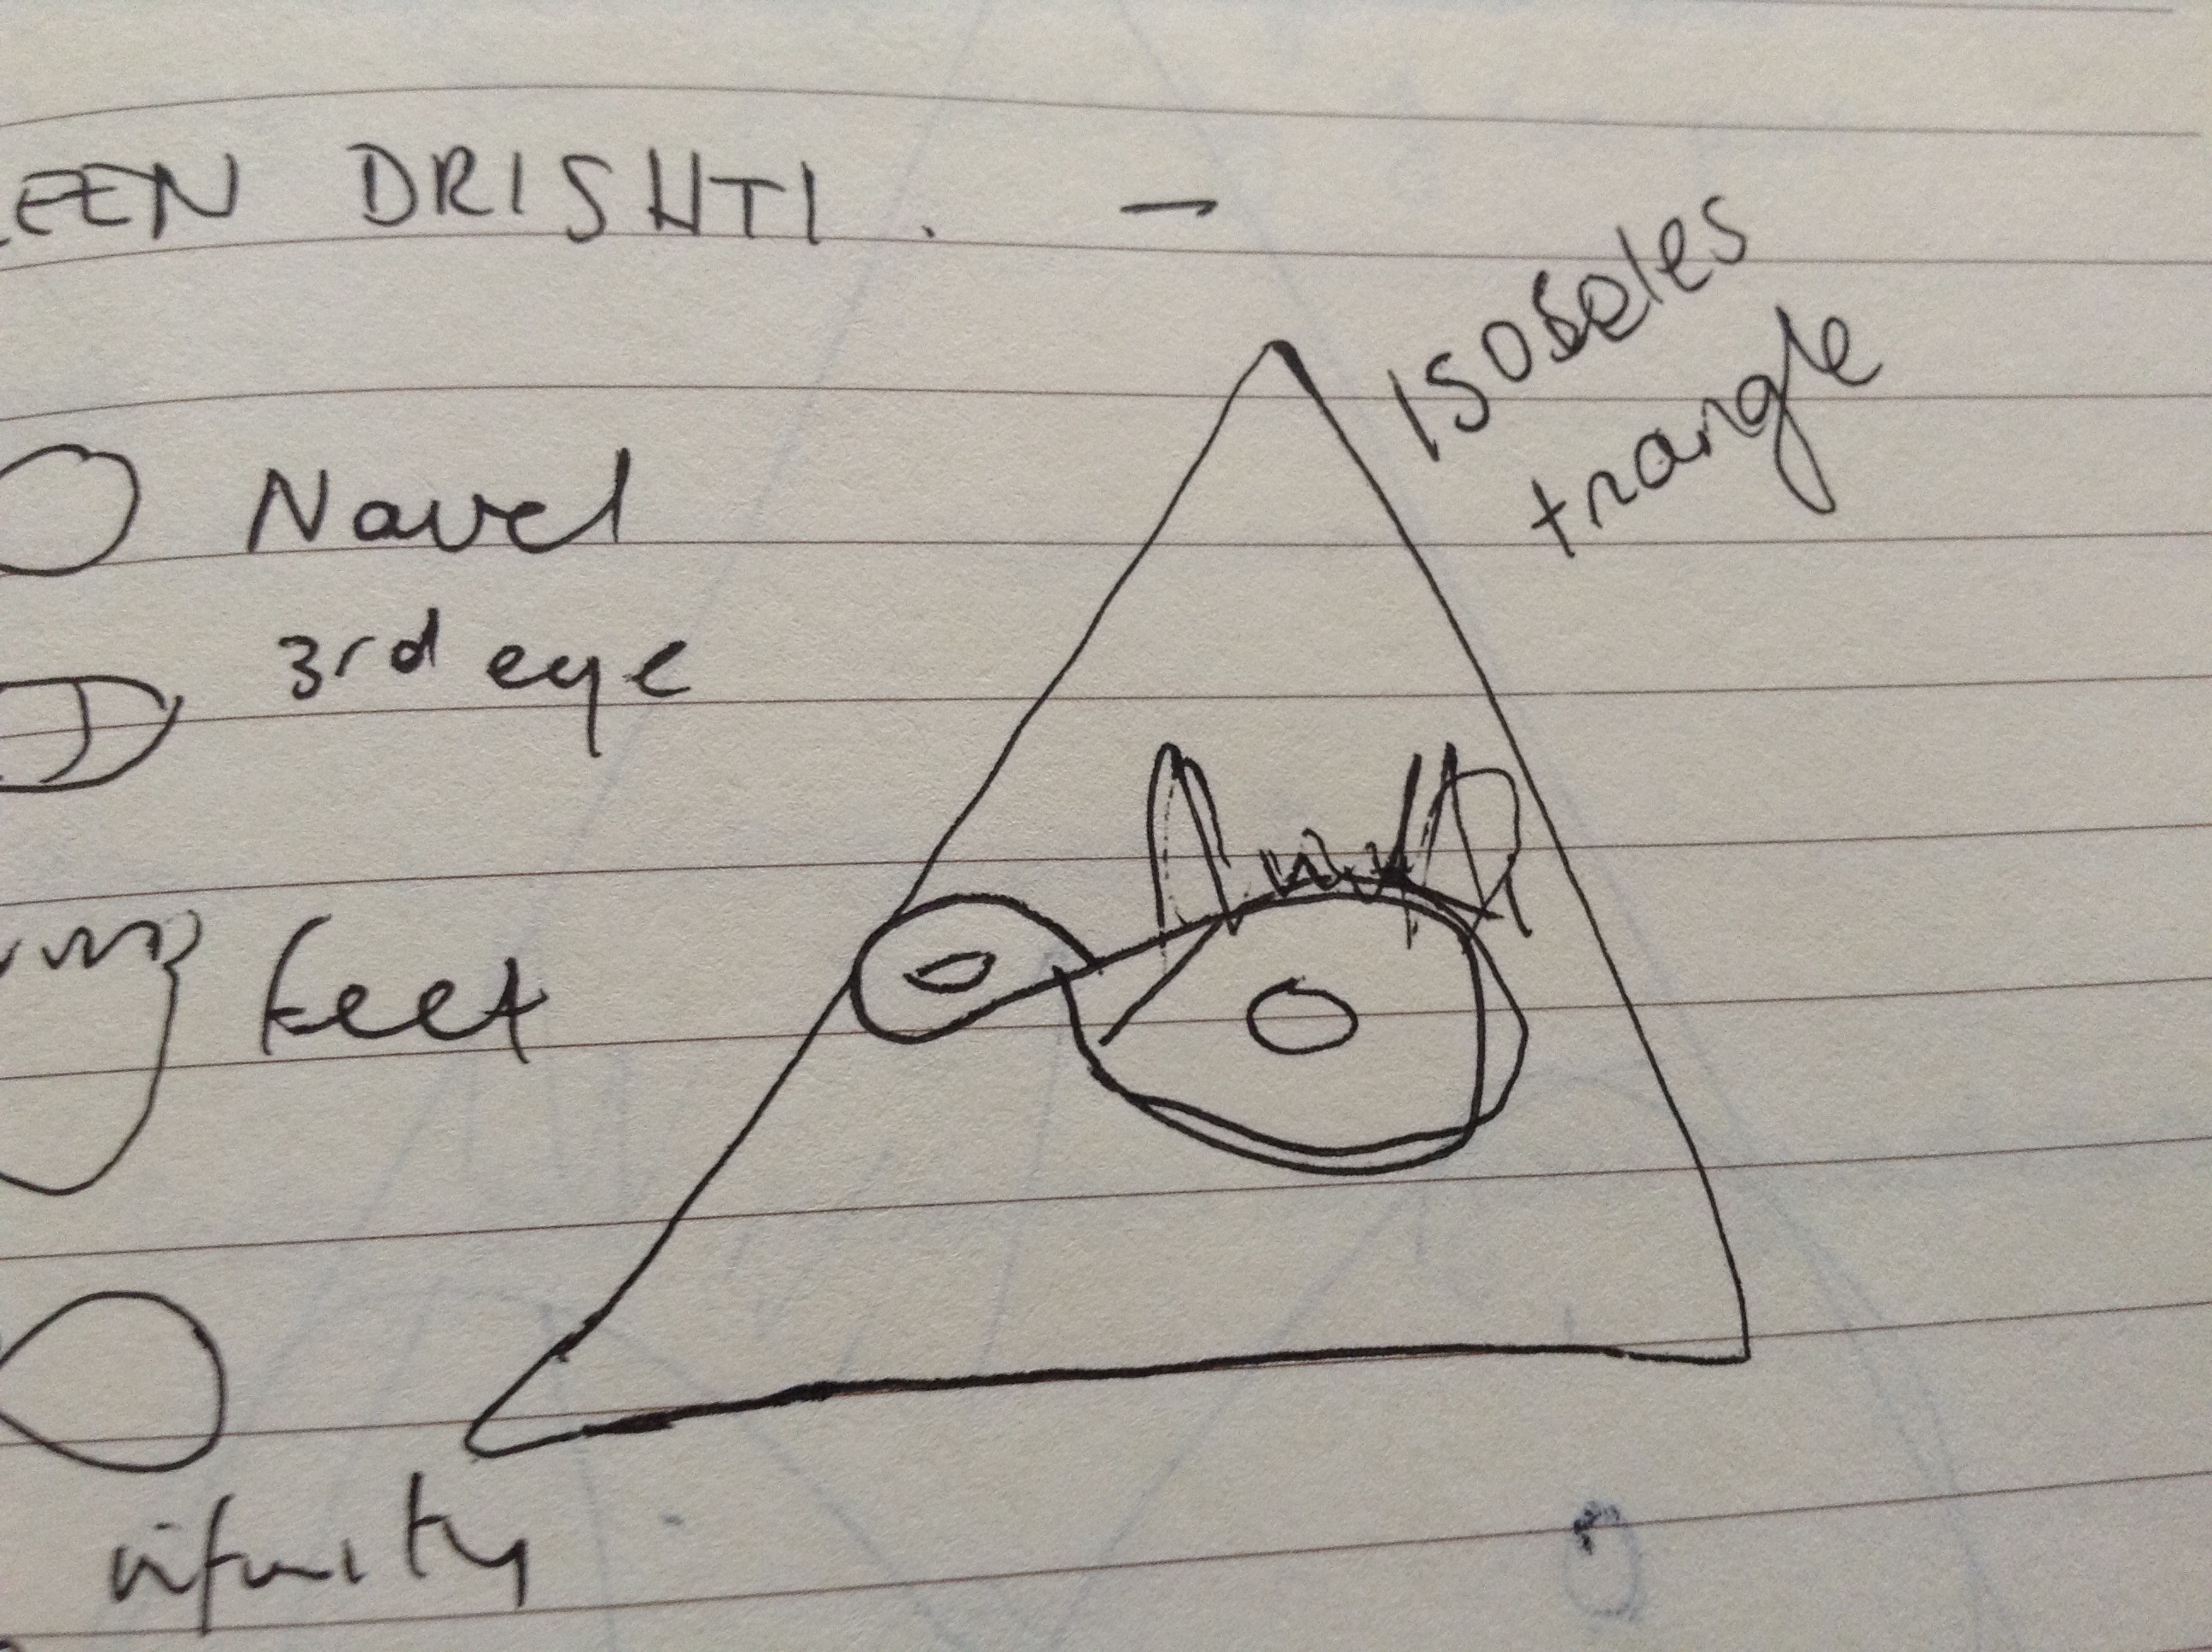 EEN DRISHTI. —
isosceles
triangle
Navel
3rd eye
feet
infinity